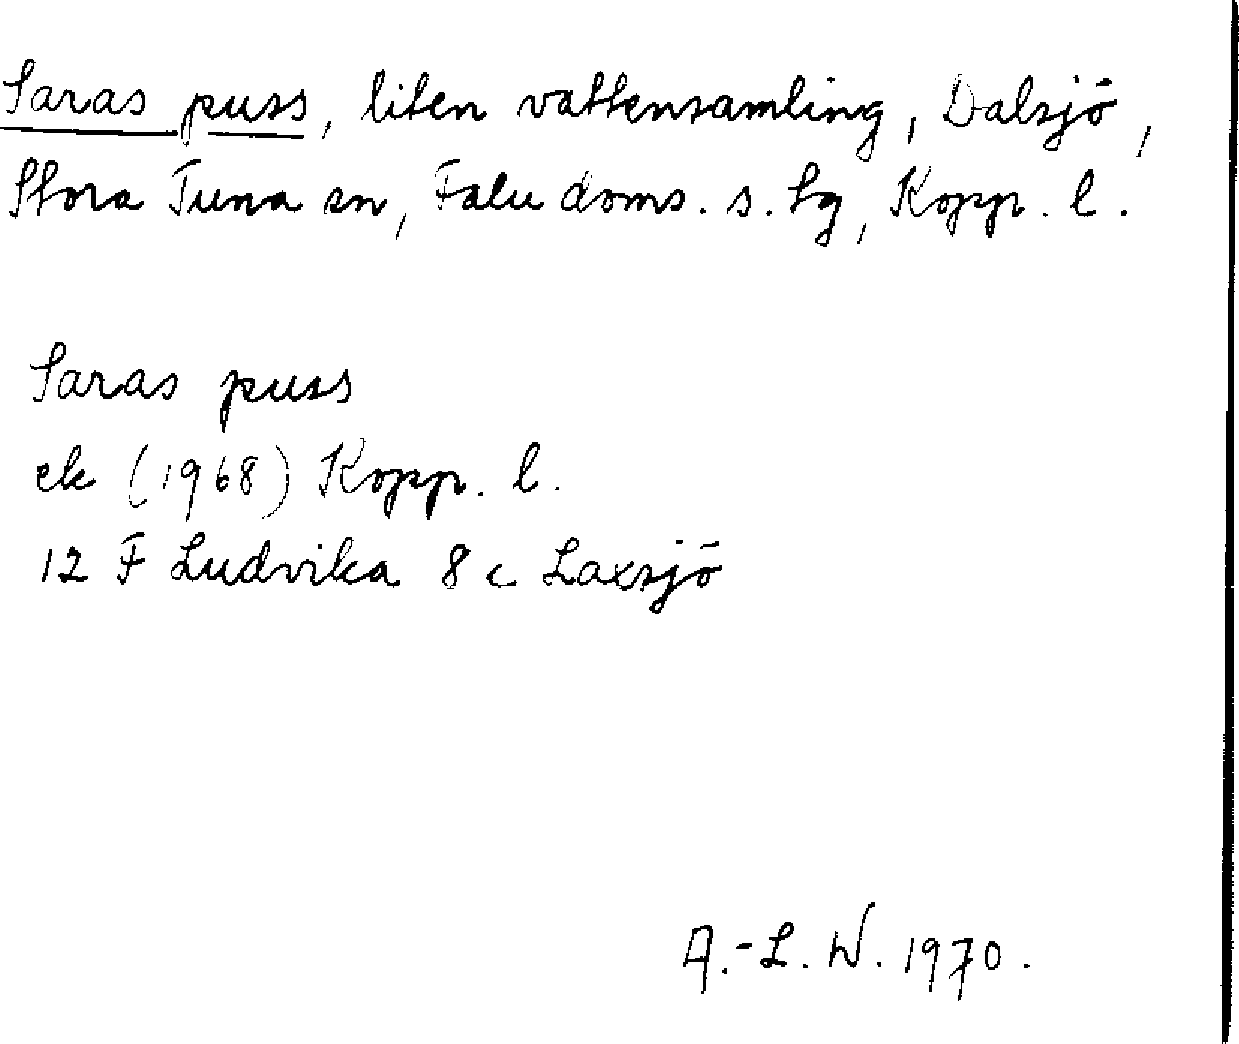 Saras puss, liten vattensamling, Dalsjö,
Stora Tuna sn, Falu doms. s. tg, Kopp. l.
Saras puss
ek (1968) Kopp. l.
12 F Ludvika 8 c Laxsjö
A.-L. W. 1970.